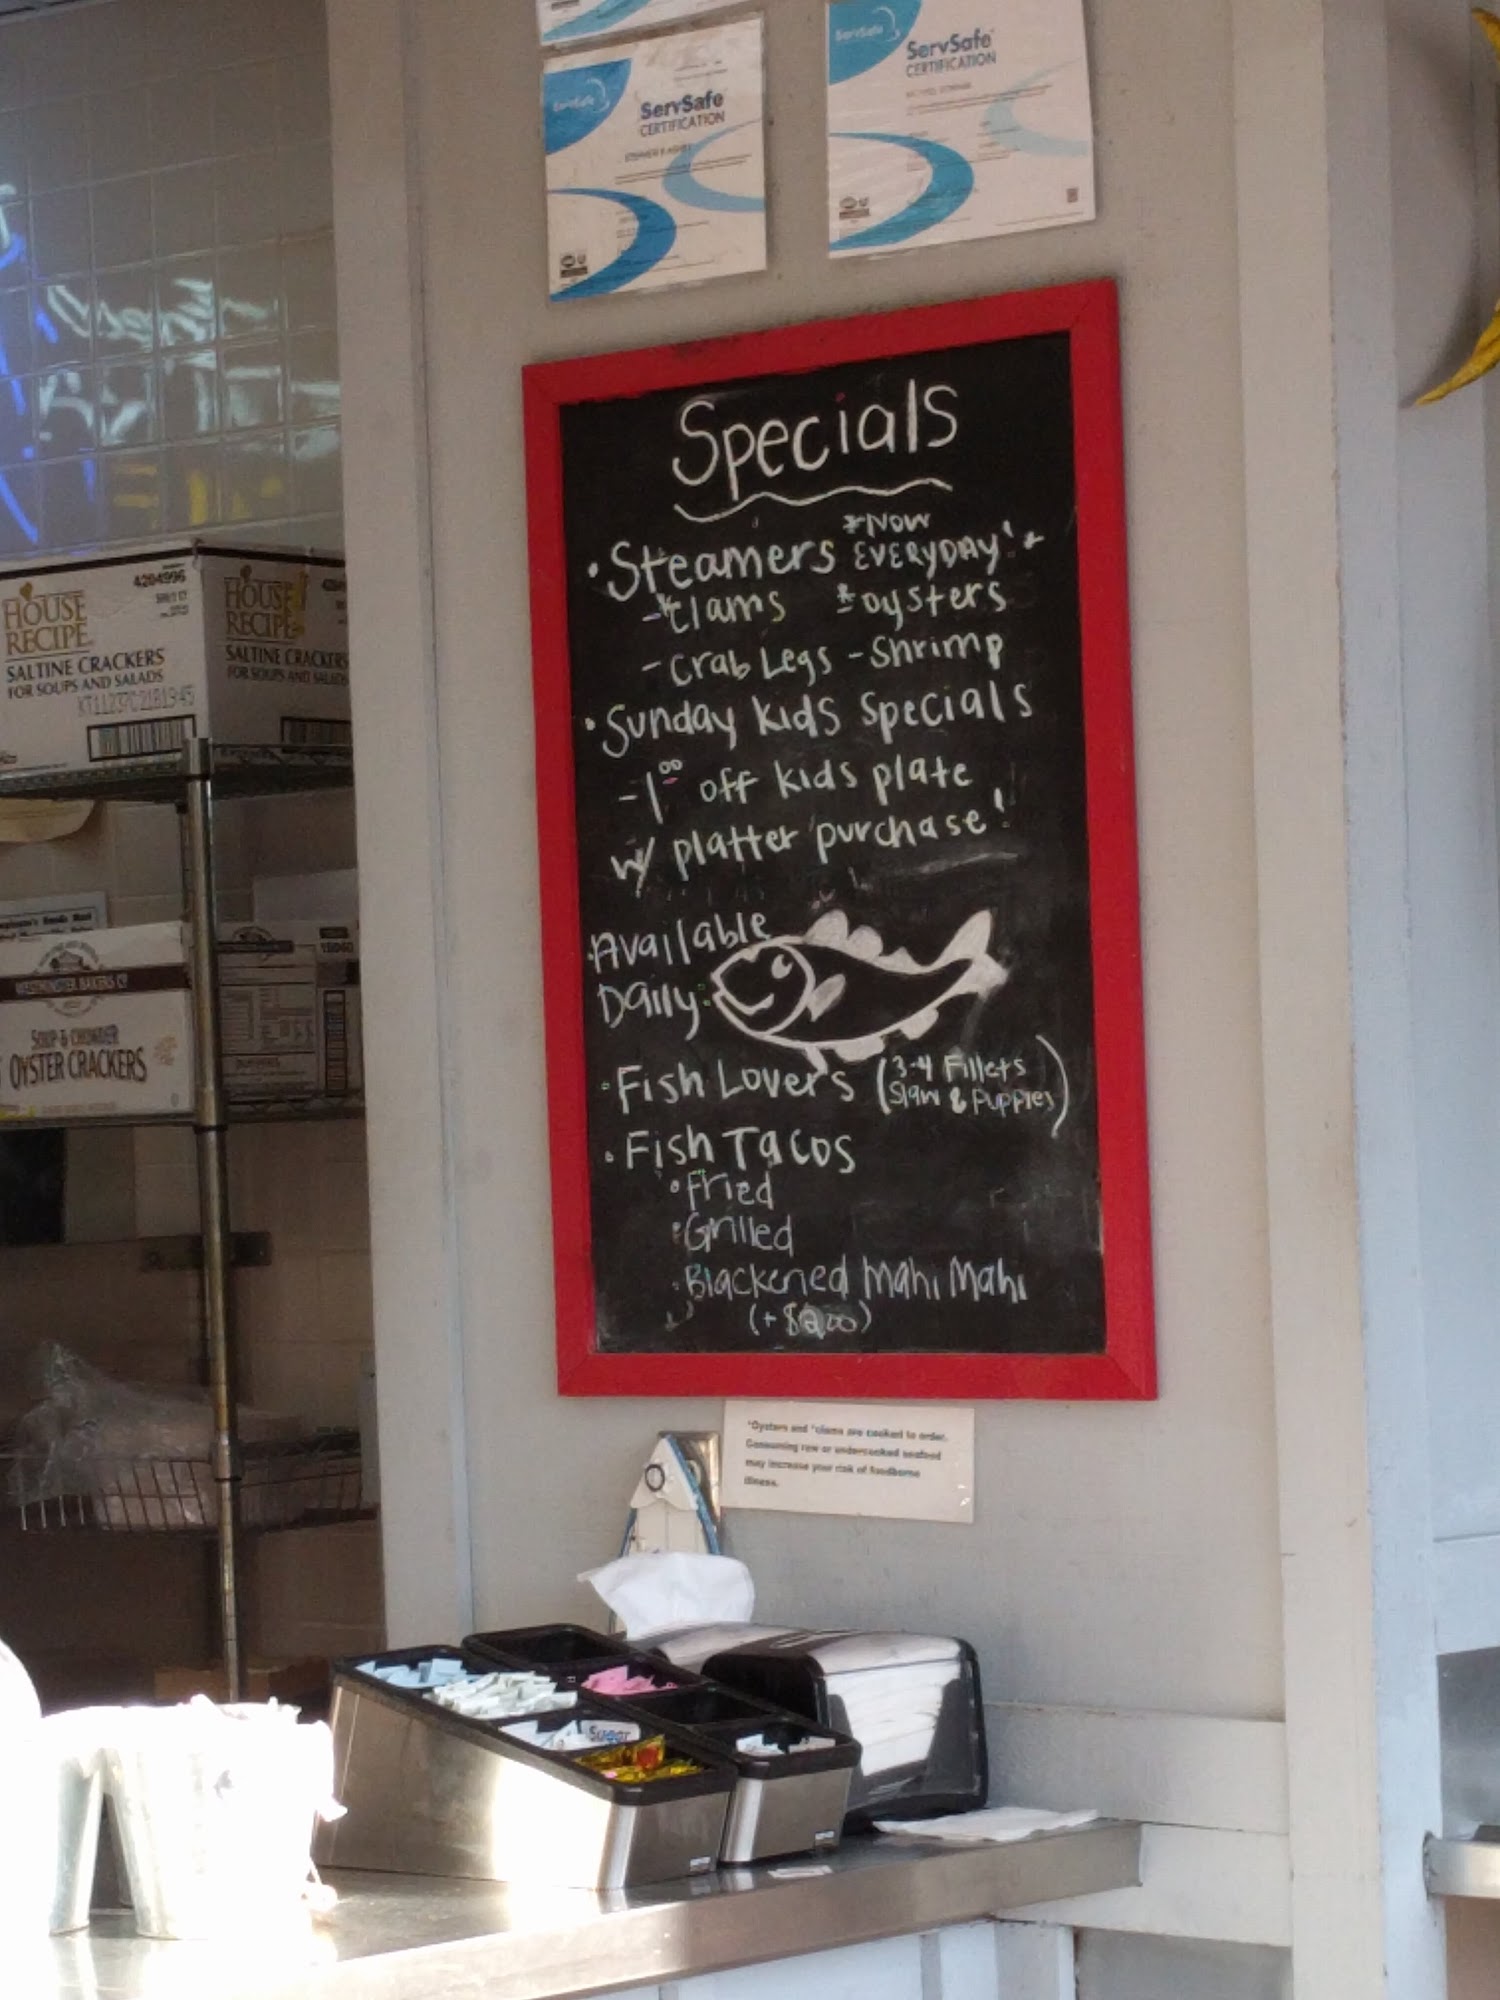 ServSafe
ServSafe
CERTIFICATION
ServSafe
ServSafe
CERTIFICATION
Specials
• Steamers *NOW
EVERYDAY! *
- *clams - *oysters
- Crab Legs - Shrimp
• Sunday Kids Specials
- 1⁰⁰ off kids plate
w/ platter purchase!
Available
Daily:
• Fish Lovers (3-4 Fillets
Slaw & Puppies)
• Fish Tacos
• Fried
• Grilled
• Blackened Mahi Mahi
(+ $2.00)
*Oysters and *clams are cooked to order.
Consuming raw or undercooked seafood
may increase your risk of foodborne
illness.
4204996
HOUSE
RECIPE
SALTINE CRACKERS
FOR SOUPS AND SALADS
HOUSE
RECIPE
SALTINE CRACKERS
FOR SOUPS AND SALADS
WESTMINSTER BAKERS CO
SOUP & CHOWDER
OYSTER CRACKERS
Sugar